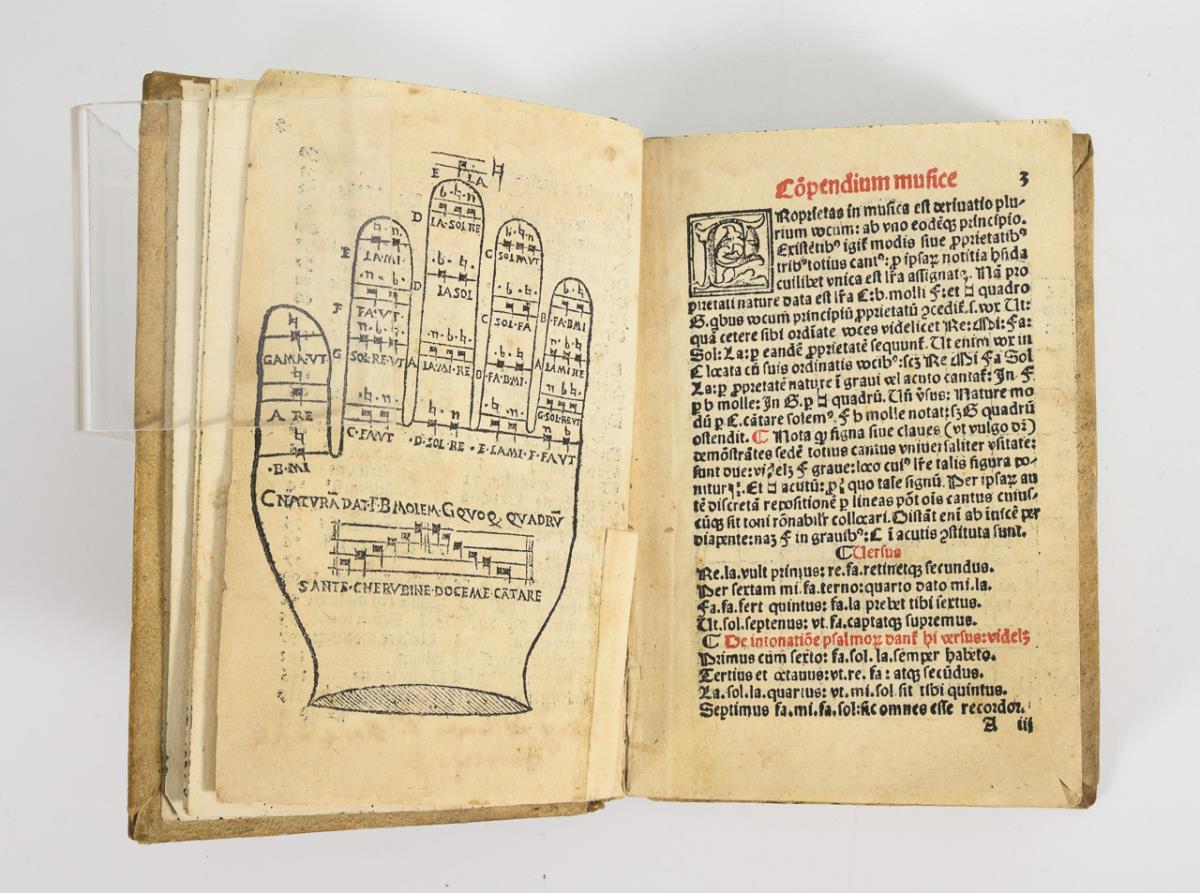 E LA
D
LA SOL RE
E
LA·MI·
C
SOL FA UT
D
LA SOL
F
FA·VT
C
SOL·FA
B
FA·B·MI
GAMA·VT
G
SOL·RE·VT
A
LA·MI·RE
B
FA·B·MI·
A
LAMIRE
A RE
G·SOL·REVT
C·FAVT
·D·SOL·RE
·E·LA·MI·
F·FAVT
·B·MI
C NATVRĀ DAT·F·B MOLEM·G QVOQȜ QVADRV̄
SANTE·CHERVBINE·DOCEME·CĀTARE
Cōpendium musice
3
PRoprietas in musica est deriuatio plu-
rium vocum: ab vno eodēqȝ principio.
Existētibꝰ igit᷑ modis siue ꝓprietatibꝰ
tribꝰ totius cantꝰ: ꝑ ipsaꝝ notitia hñda
cuilibet vnica est lr̄a assignata. Nā pro
prietati nature data est lr̄a C: b. molli F: et □ quadro
G. qbus vocum principiū ꝓprietatū ꝓcedit᷑. s. vox Ut:
quā cetere sibi ordīate voces videlicet Re: Mi: Fa:
Sol: La: ꝑ eandē ꝓprietatē sequunt᷑. Ut enim vox in
C locata cū suis ordinatis vocibꝰ: scȝ Re Mi Fa Sol
La: ꝑ ꝓprietatē nature ī graui vel acuto cantat᷑: In F
ꝑ b molle: In G. ꝑ □ quadrū. Uñ ṽsus: Nature mo
dū ꝑ C. cātare solemꝰ. F b molle notat: sȝ G quadrū
ostendit. ¶ Nota qꝙ signa siue claues (vt vulgo dr̄)
demōstrātes sedē totius cantus vniuersaliter vsitate:
sunt due: videlȝ F graue: loco cuiꝰ lr̄e talis figura po-
nitur. Et □ acutū: ꝑ quo tale signū. Per ipsaꝝ au
tē discretā repositionē ꝑ lineas pōt ois cantus cuius-
cūqȝ sit toni rōnabilr̄ collocari. Distāt eni ab inscē per
diapente: naȝ F in grauibꝰ: C ī acutis ꝯstituta sunt.
¶ Uersus
Re. la. vult primus: re. fa. retinetqȝ secundus.
Per sextam mi. fa. terno: quarto dato mi. la.
Fa. fa. fert quintus: fa. la prebet tibi sextus.
Ut. sol. septenus: vt. fa. captatqȝ supremus.
¶ De intonatiōe psalmoꝝ dant᷑ hi versus: videlȝ
Primus cum sexto: fa. sol. la. semper habeto.
Tertius et octauus: vt. re. fa: atqȝ secūdus.
La. sol. la. quartus: vt. mi. sol sit tibi quintus.
Septimus fa. mi. fa. sol: sic omnes esse recordor.
A iij